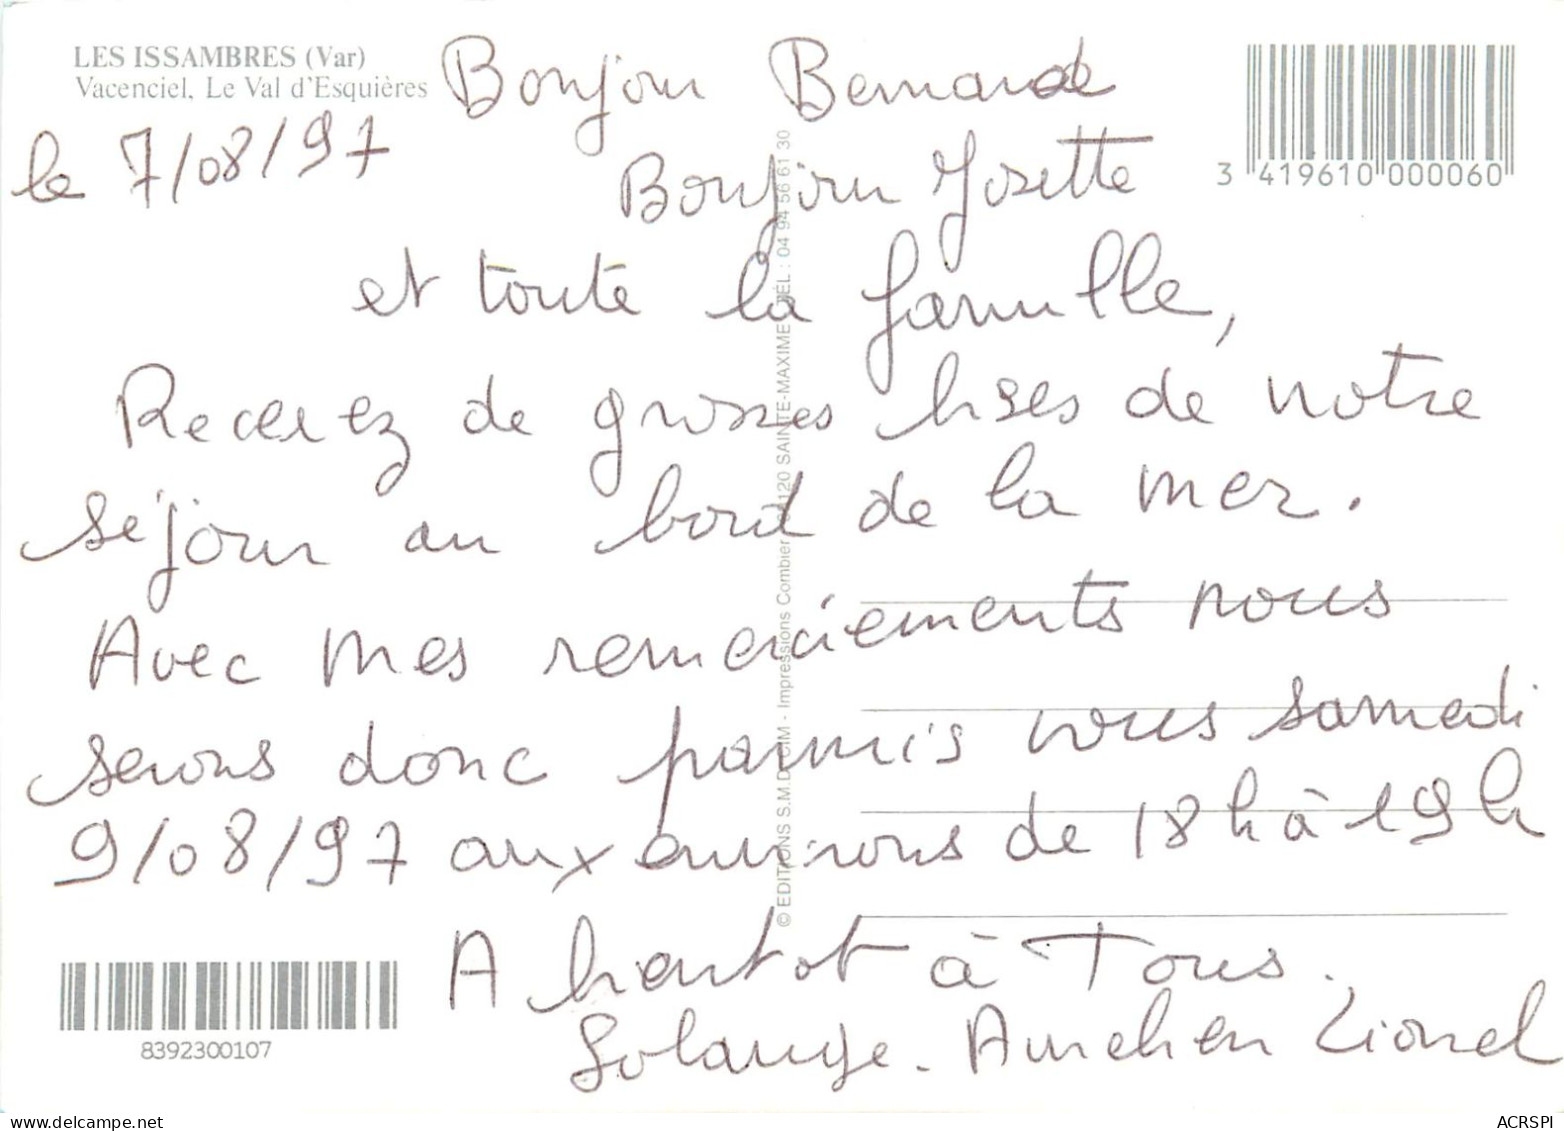 LES ISSAMBRES (Var)
Vacenciel, Le Val d'Esquières
le 7/08/97
Bonjour Bernarde
Bonjour Josette
et toute la famille,
Recevez de grosses bises de notre
séjour au bord de la mer.
Avec mes remerciements nous
serons donc parmis vous samedi
9/08/97 aux environs de 18h à 19h
A bientot à Tous.
Solange. Aurelien Lionel
3 419610 000060
© EDITIONS S.M.D. CIM - Impressions Combier 120 SAINTE-MAXIME TEL : 04 94 56 61 30
8392300107
delcampe.net
ACRSPI